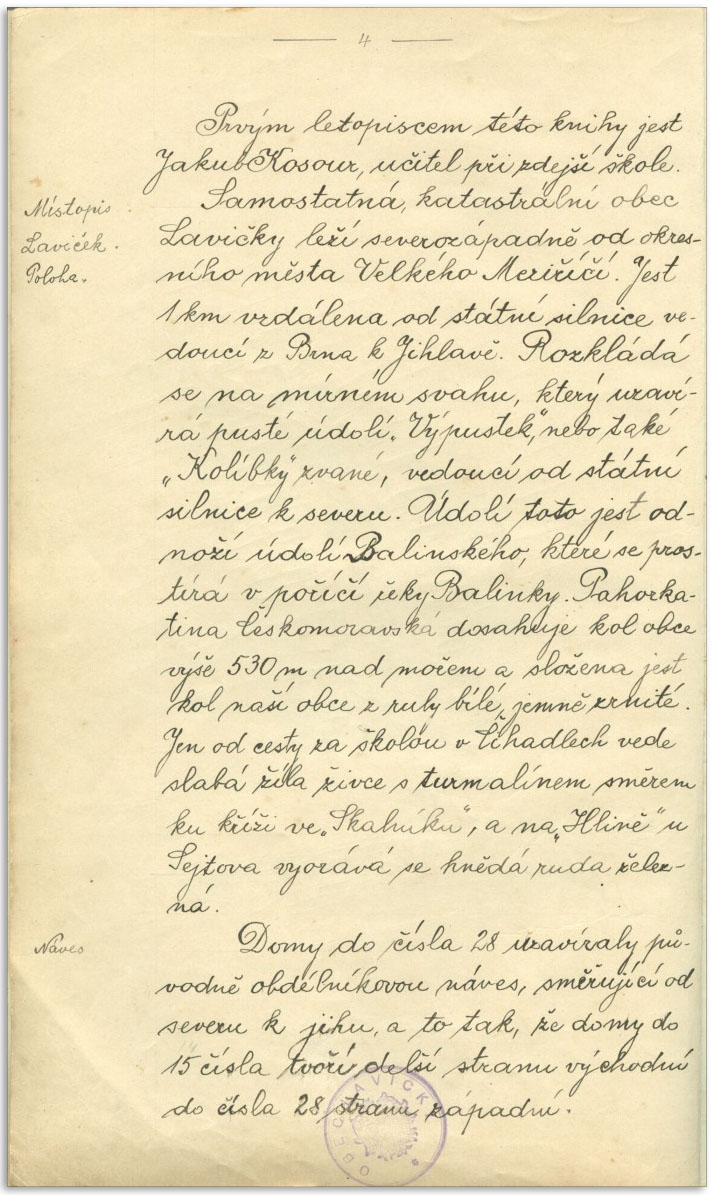 4
Prvým letopiscem této knihy jest
Jakub Kosour, učitel při zdejší škole.
Místopis
Laviček.
Poloha.
Samostatná, katastrální obec
Lavičky leží severozápadně od okres-
ního města Velkého Meziříčí. Jest
1 km vzdálena od státní silnice ve-
doucí z Brna k Jihlavě. Rozkládá
se na mírném svahu, který uzaví-
rá pusté údolí „Výpustek," nebo také
„Kolíbky" zvané, vedoucí od státní
silnice k severu. Údolí toto jest od-
noží údolí Balinského, které se pros-
tírá v poříčí řeky Balinky. Pahorka-
tina Českomoravská dosahuje kol obce
výše 530 m nad mořem a složena jest
kol naší obce z ruly bílé, jemně zrnité.
Jen od cesty za školou v Čihadlech vede
slabá žíla živce s turmalínem směrem
ku kříži ve „Skalníku", a na „Hlině" u
Sejtova vyorává se hnědá ruda želez-
ná.
Náves
Domy do čísla 28 uzavíraly pů-
vodně obdélníkovou náves, směřující od
severu k jihu, a to tak, že domy do
15 čísla tvoří delší stranu východní
do čísla 28 stranu západní.
OBEC LAVIČKY